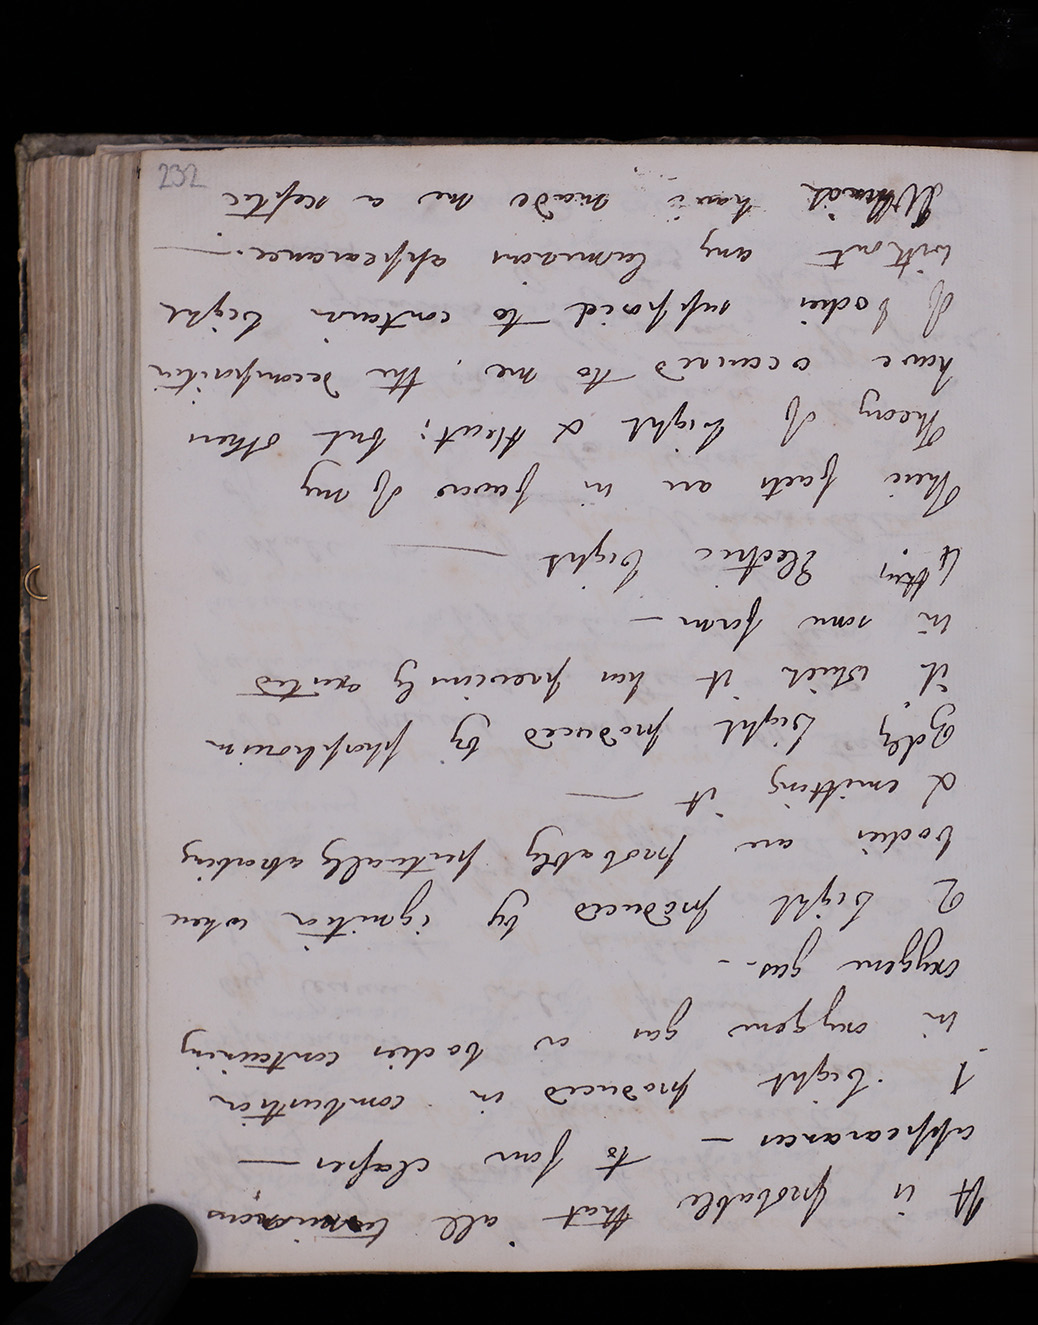 232
It is probable that all luminous
appearances – to four classes —
1 Light produced in combustion
in oxygene gas or bodies containing
oxygene gas. –
2 Light produced by ignition when
bodies are probably perpetually absorbing
& emitting it —
3dly Light produced by phosphorism
it which it has previously existed
in some form –
4 thus Electric light —
These facts are in favor of my
Theory of light & Heat; but others
have occurred to me, the decomposition
of bodies supposed to contain light
without any luminous appearance. —
have made me a sceptic